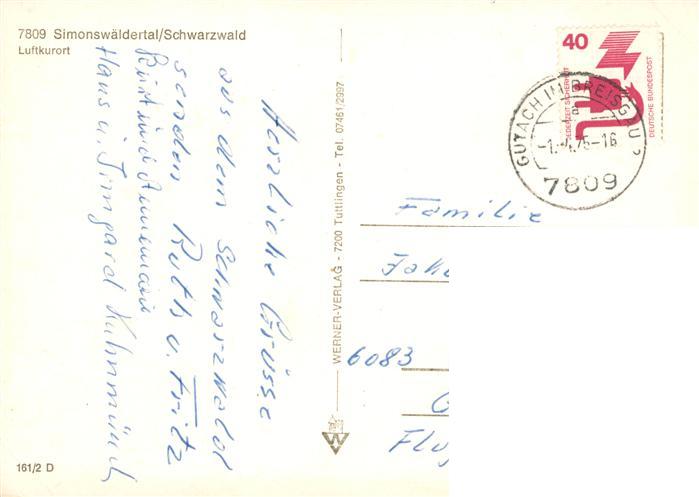 7809 Simonswäldertal/Schwarzwald
Luftkurort
Herzliche Grüsse
aus dem Schwarzwald
senden Ruth u. Fritz
Kurt und Annemarie
Hans u. Irmgard Kuhnmünch
WERNER-VERLAG - 7200 Tuttlingen - Tel. 07461/2997
W
40
JEDERZEIT SICHERHEIT
DEUTSCHE BUNDESPOST
GUTACH IM BREISGAU 2
a
-1.-4.75-16
7809
Familie
6083
161/2 D